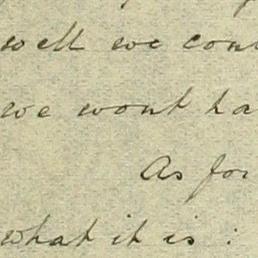 well we con
we wont ha
As for
what it is :